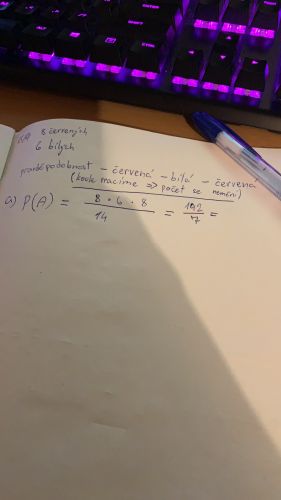 8 červených
6 bílých
pravděpodobnost - červená - bílá - červená
(koule vracíme => počet se nemění)
a) P(A) = 8 · 6 · 8 / 14 = 192 / 7 =